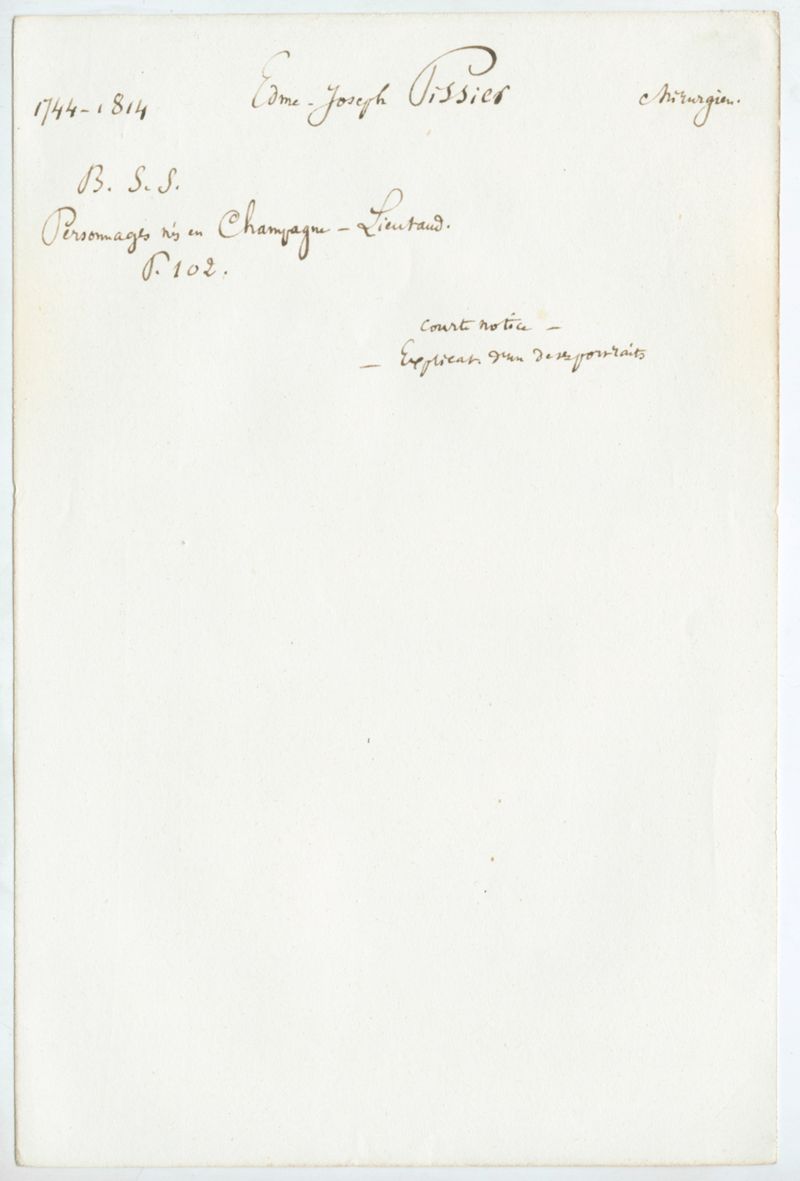 1744-1814 Edme-Joseph Pissier Chirurgien.
B. S. S.
Personnages nés en Champagne - Lieutaud.
P. 102.
courte notice -
- Explicat. d'un de ses portraits